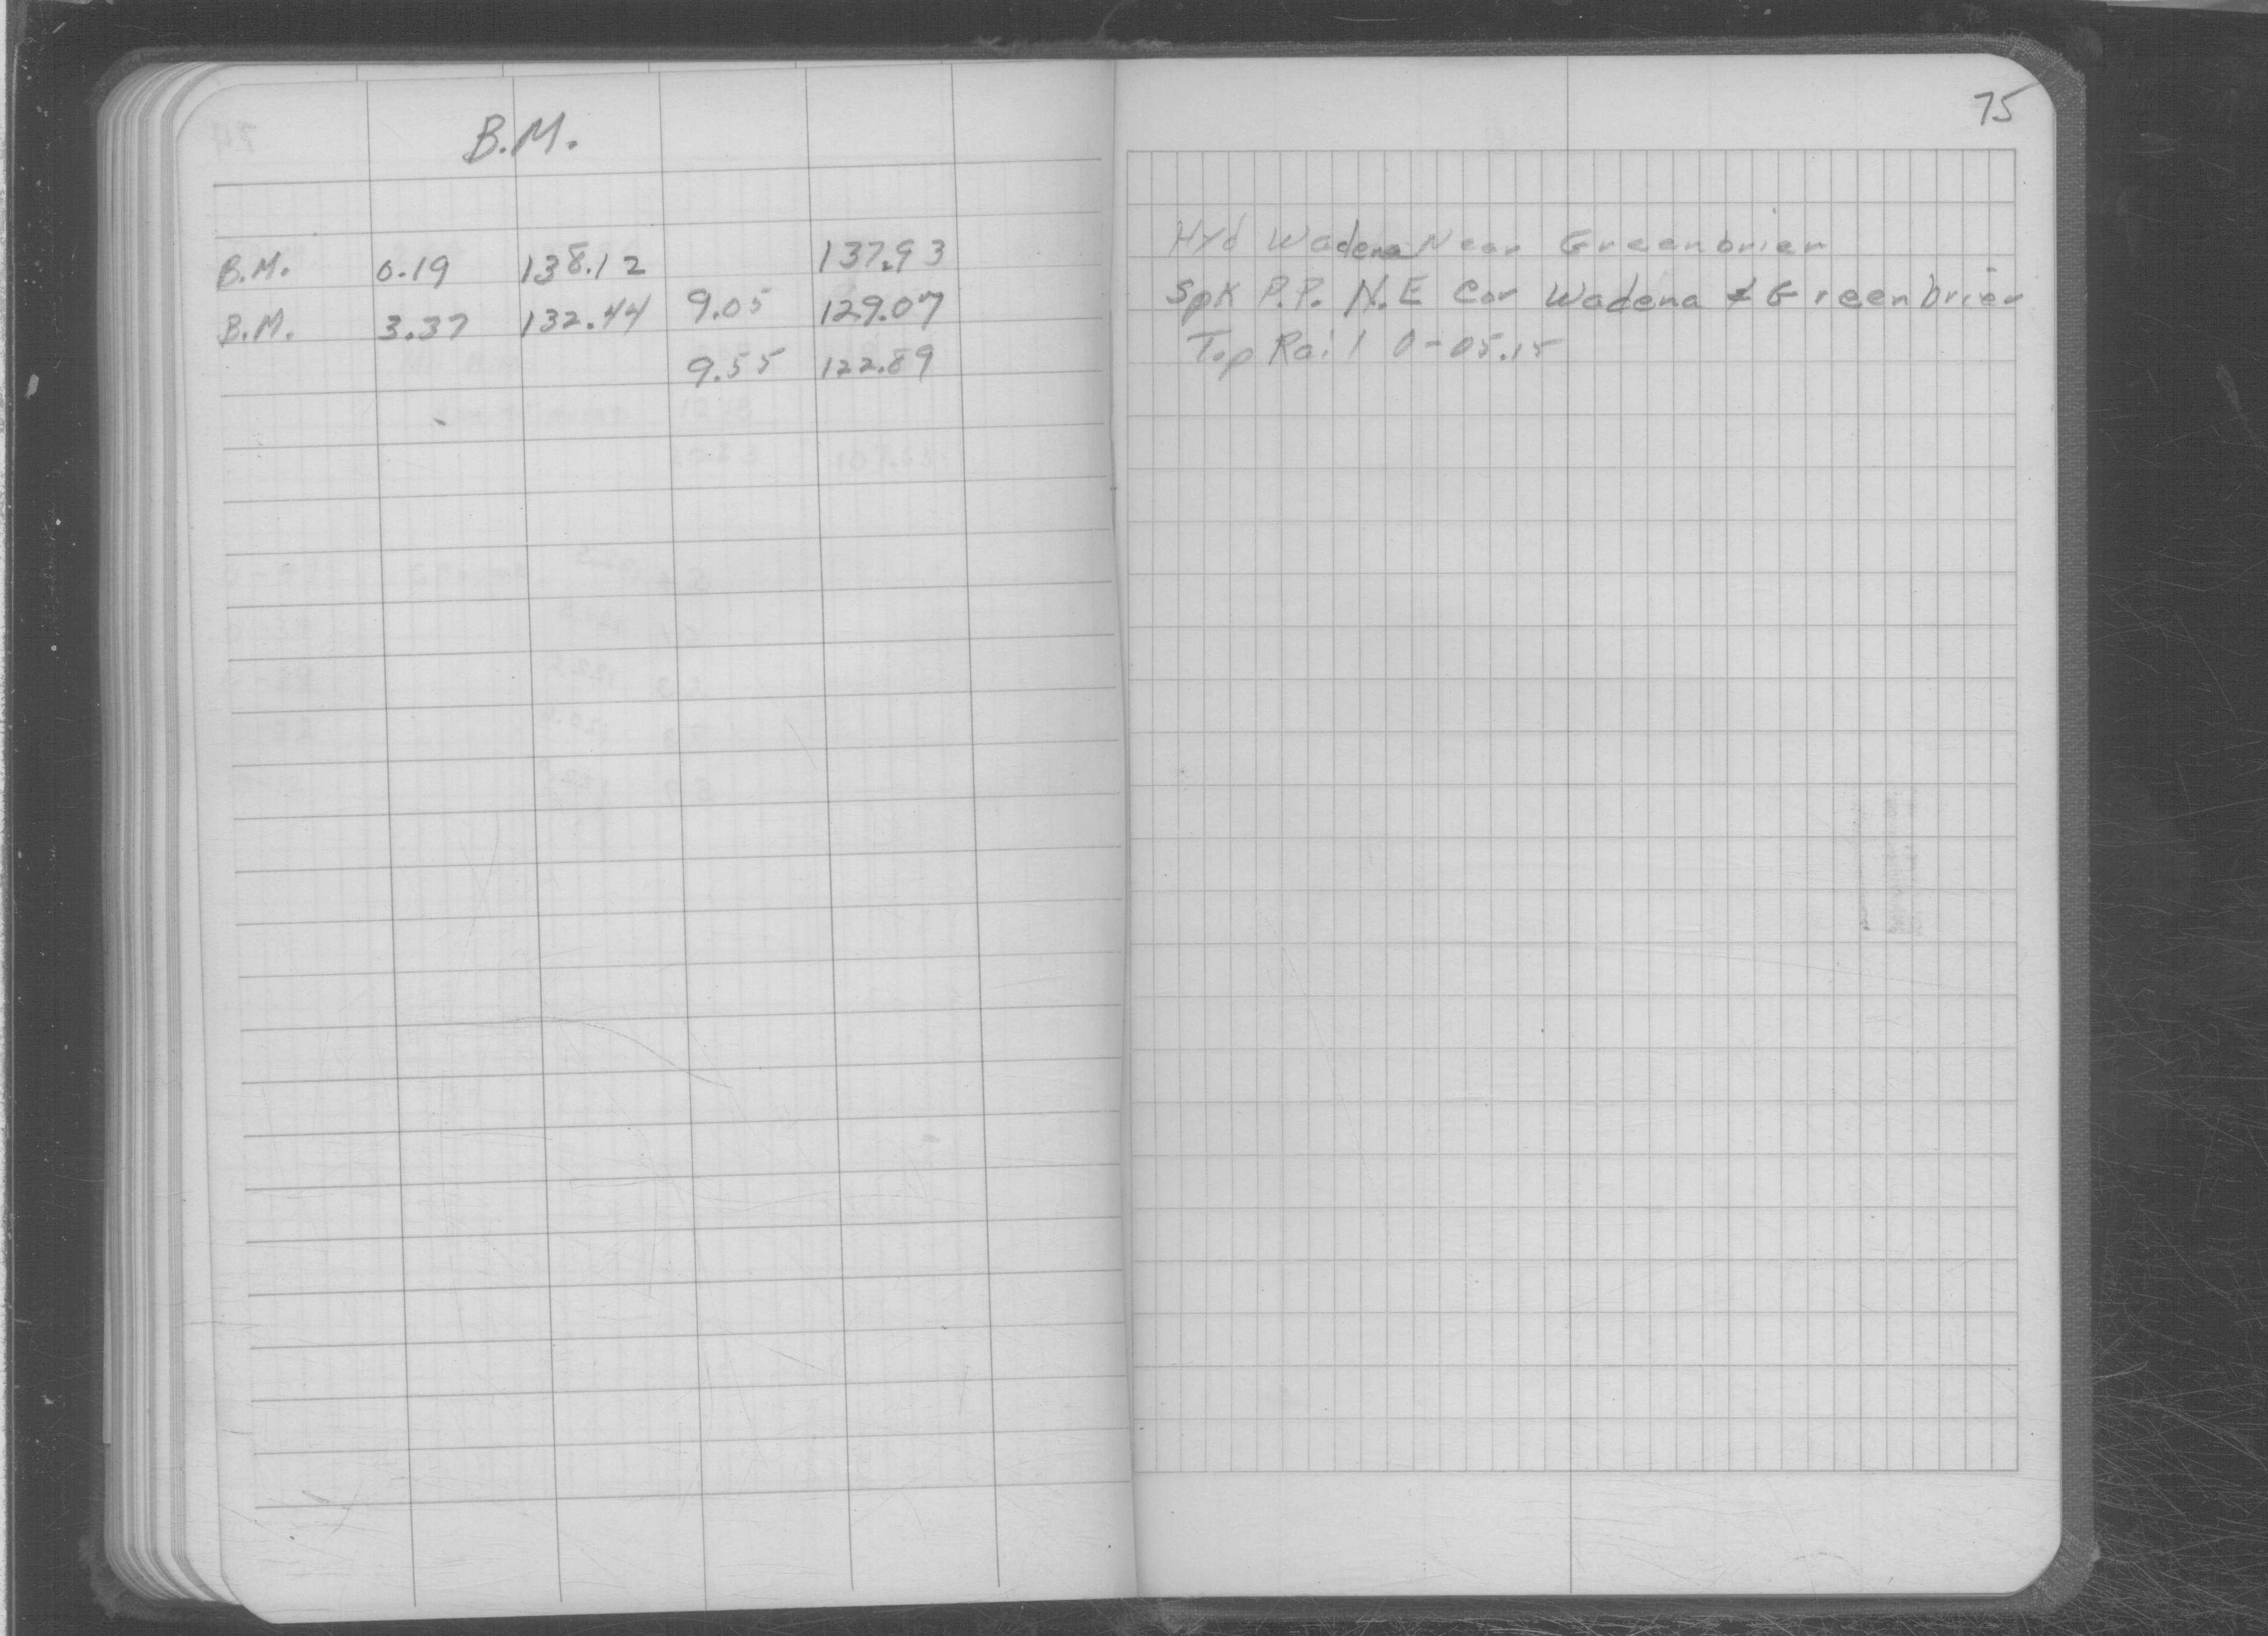 B.M.
75
B.M. 0.19 138.12 137.93
Hyd Wadena Near Greenbrier
B.M. 3.37 132.44 9.05 129.07
Spk P.P. N.E Cor Wadena & Greenbrier
9.55 122.89
Top Rail 0-05.15